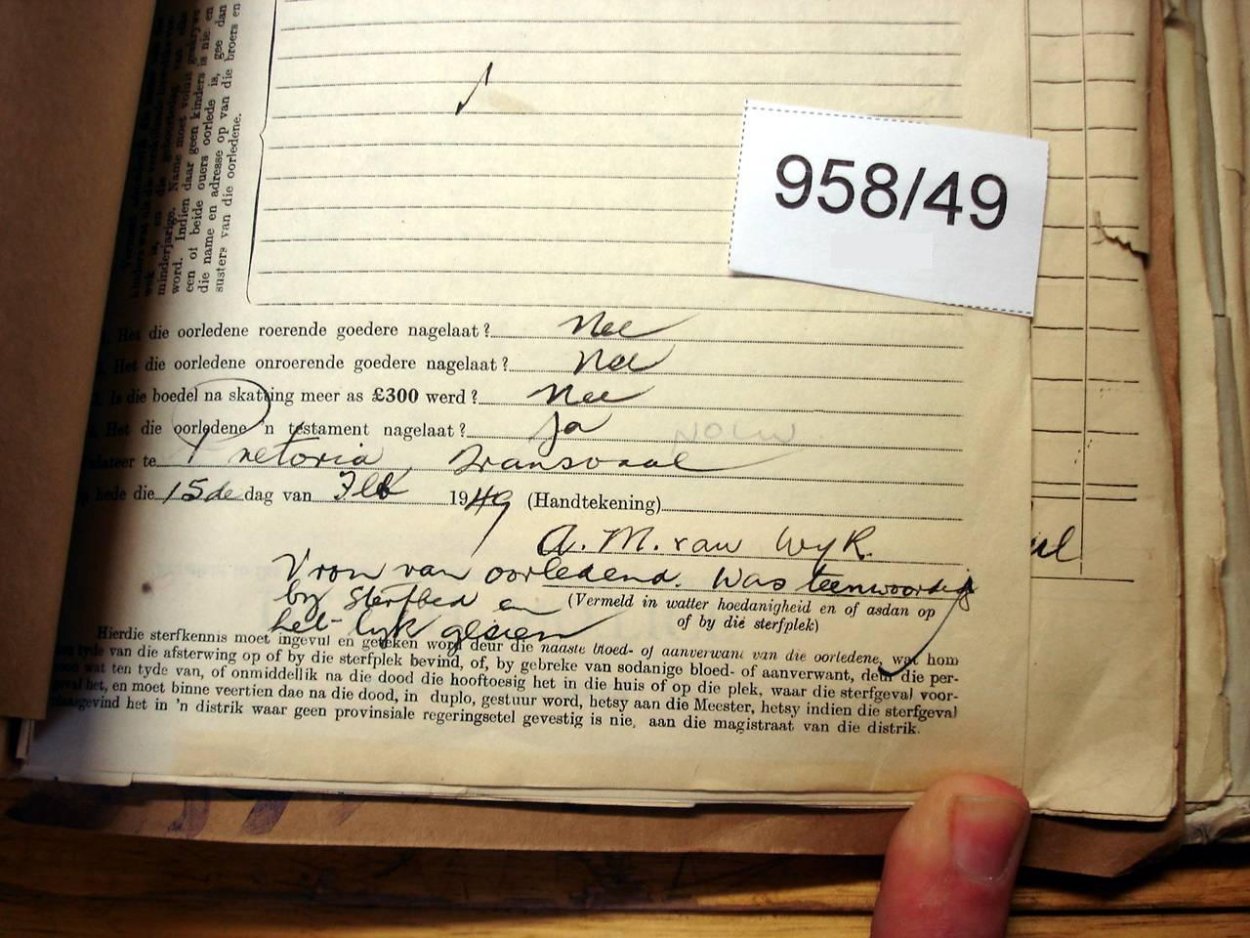 minderjarige. Name moet voluit geskrywe
word. Indien daar geen kinders is nie en
een of beide ouers oorlede is, gee dan
die name en adresse op van die broers en
susters van die oorledene.
958/49
Het die oorledene roerende goedere nagelaat? Nee
Het die oorledene onroerende goedere nagelaat? Nee
Is die boedel na skatting meer as £300 werd? Nee
Het die oorledene 'n testament nagelaat? Ja
NOUW
Gedateer te Pretoria, Transvaal
hede die 15de dag van Feb 1949 (Handtekening)
A. M. van Wyk.
Vrou van oorledene. Was teenwoordig
by sterfbed en
(Vermeld in watter hoedanigheid en of asdan op
of by die sterfplek)
het lyk gesien
Hierdie sterfkennis moet ingevul en geteken word deur die naaste bloed- of aanverwant van die oorledene, wat hom
ten tyde van die afsterwing op of by die sterfplek bevind, of, by gebreke van sodanige bloed- of aanverwant, deur die per-
soon wat ten tyde van, of onmiddellik na die dood die hooftoesig het in die huis of op die plek, waar die sterfgeval voor-
geval het, en moet binne veertien dae na die dood, in duplo, gestuur word, hetsy aan die Meester, hetsy indien die sterfgeval
plaasgevind het in 'n distrik waar geen provinsiale regeringsetel gevestig is nie, aan die magistraat van die distrik.